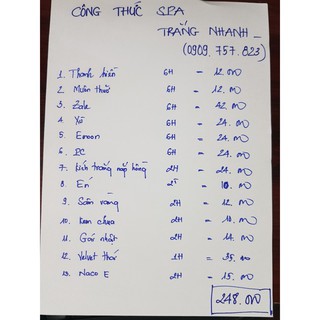 CÔNG THỨC SPA
TRẮNG NHANH _
(0909. 757. 823)
1. Thanh hiền 6H = 12.000
2. Muôn thuở 6H = 12.000
3. Zale 6H = 42.000
4. Yô 6H = 24.000
5. Eroon 6H = 24.000
6. PC 6H = 24.000
7. Kích trắng nắp hồng 2H = 24.000
8. En 2T = 10.000
9. Sâm vàng 2H = 12.000
10. Kem chua 2H = 10.000
11. Gói nhật 2H = 14.000
12. Velvet thái 1H = 35.000
13. Naco E 2H = 15.000
248.000